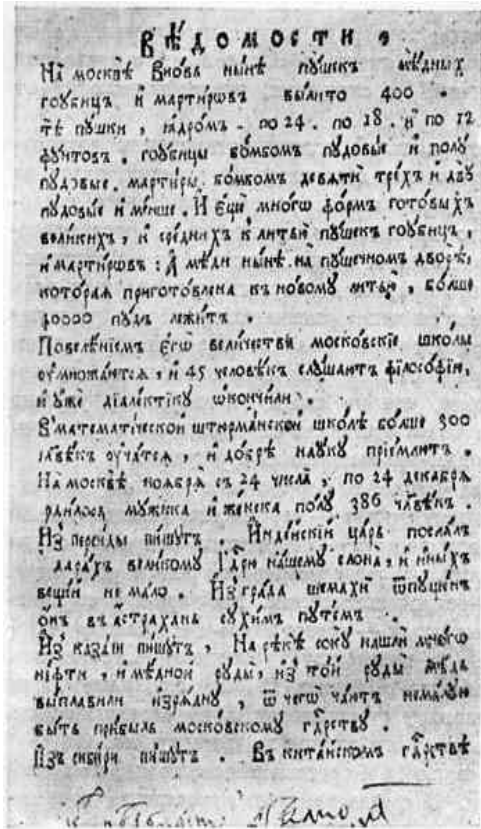 ВѢДОМОСТИ
На москвѣ вновь нынѣ пушекъ мѣдныхъ
гоубицъ и мартировъ вылито 400.
тѣ пушки, ядромъ. по 24. по 18. и по 12
фунтовъ. гоубицы бомбомъ пудовые и полу
пудовые. мартиры бомбомъ девяти трехъ и двꙋ
пудовые и менше. И еще многѡ формъ готовыхъ
великихъ, и среднихъ к литью пушекъ гоубицъ,
и мартирѡвъ: А мѣди нынѣ на пушечномъ дворѣ,
которая приготовлена къ новому литью, болше
40000 пудъ лежитъ.
Повелѣниемъ егѡ величества московские школы
оумножаются, и 45 человѣкъ слушаютъ философию,
и уже диалектику ѡкончили.
В математической штюрманской школѣ болше 300
члвѣкъ оучатся, и добрѣ науку приемлютъ.
На москвѣ ноября съ 24 числа, по 24 декабря
родилось мужска и женска полу 386 члвѣкъ.
Из персиды пишутъ. Индѣйский царь послалъ
в дарахъ великому Гдрю нашему слона, и иныхъ
вещей не мало. Из града шемахи ѿпущенъ
онъ въ астрахань сухимъ путемъ.
Из казани пишутъ, На рѣкѣ соку нашли многѡ
нефти, и мѣдной руды, из той руды мѣдь
выплавили изрядну, ѿ чегѡ чаютъ немалую
быть прибыль московскому гдрству.
Изъ сибири пишутъ. Въ китайскомъ гдрствѣ